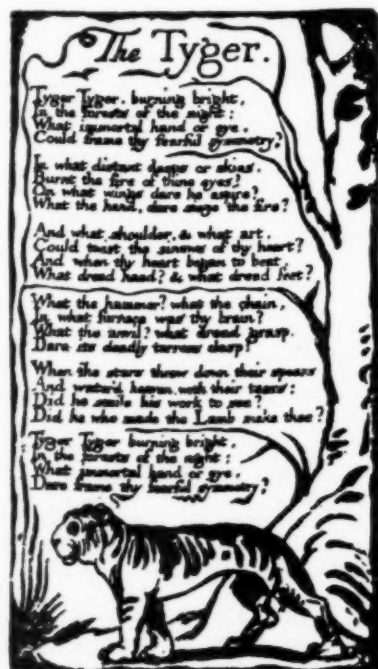 The Tyger.
Tyger Tyger. burning bright,
In the forests of the night:
What immortal hand or eye,
Could frame thy fearful symmetry?
In what distant deeps or skies.
Burnt the fire of thine eyes?
On what wings dare he aspire?
What the hand, dare sieze the fire?
And what shoulder, & what art,
Could twist the sinews of thy heart?
And when thy heart began to beat,
What dread hand? & what dread feet?
What the hammer? what the chain,
In what furnace was thy brain?
What the anvil? what dread grasp,
Dare its deadly terrors clasp?
When the stars threw down their spears
And water'd heaven with their tears:
Did he smile his work to see?
Did he who made the Lamb make thee?
Tyger Tyger burning bright,
In the forests of the night:
What immortal hand or eye,
Dare frame thy fearful symmetry?